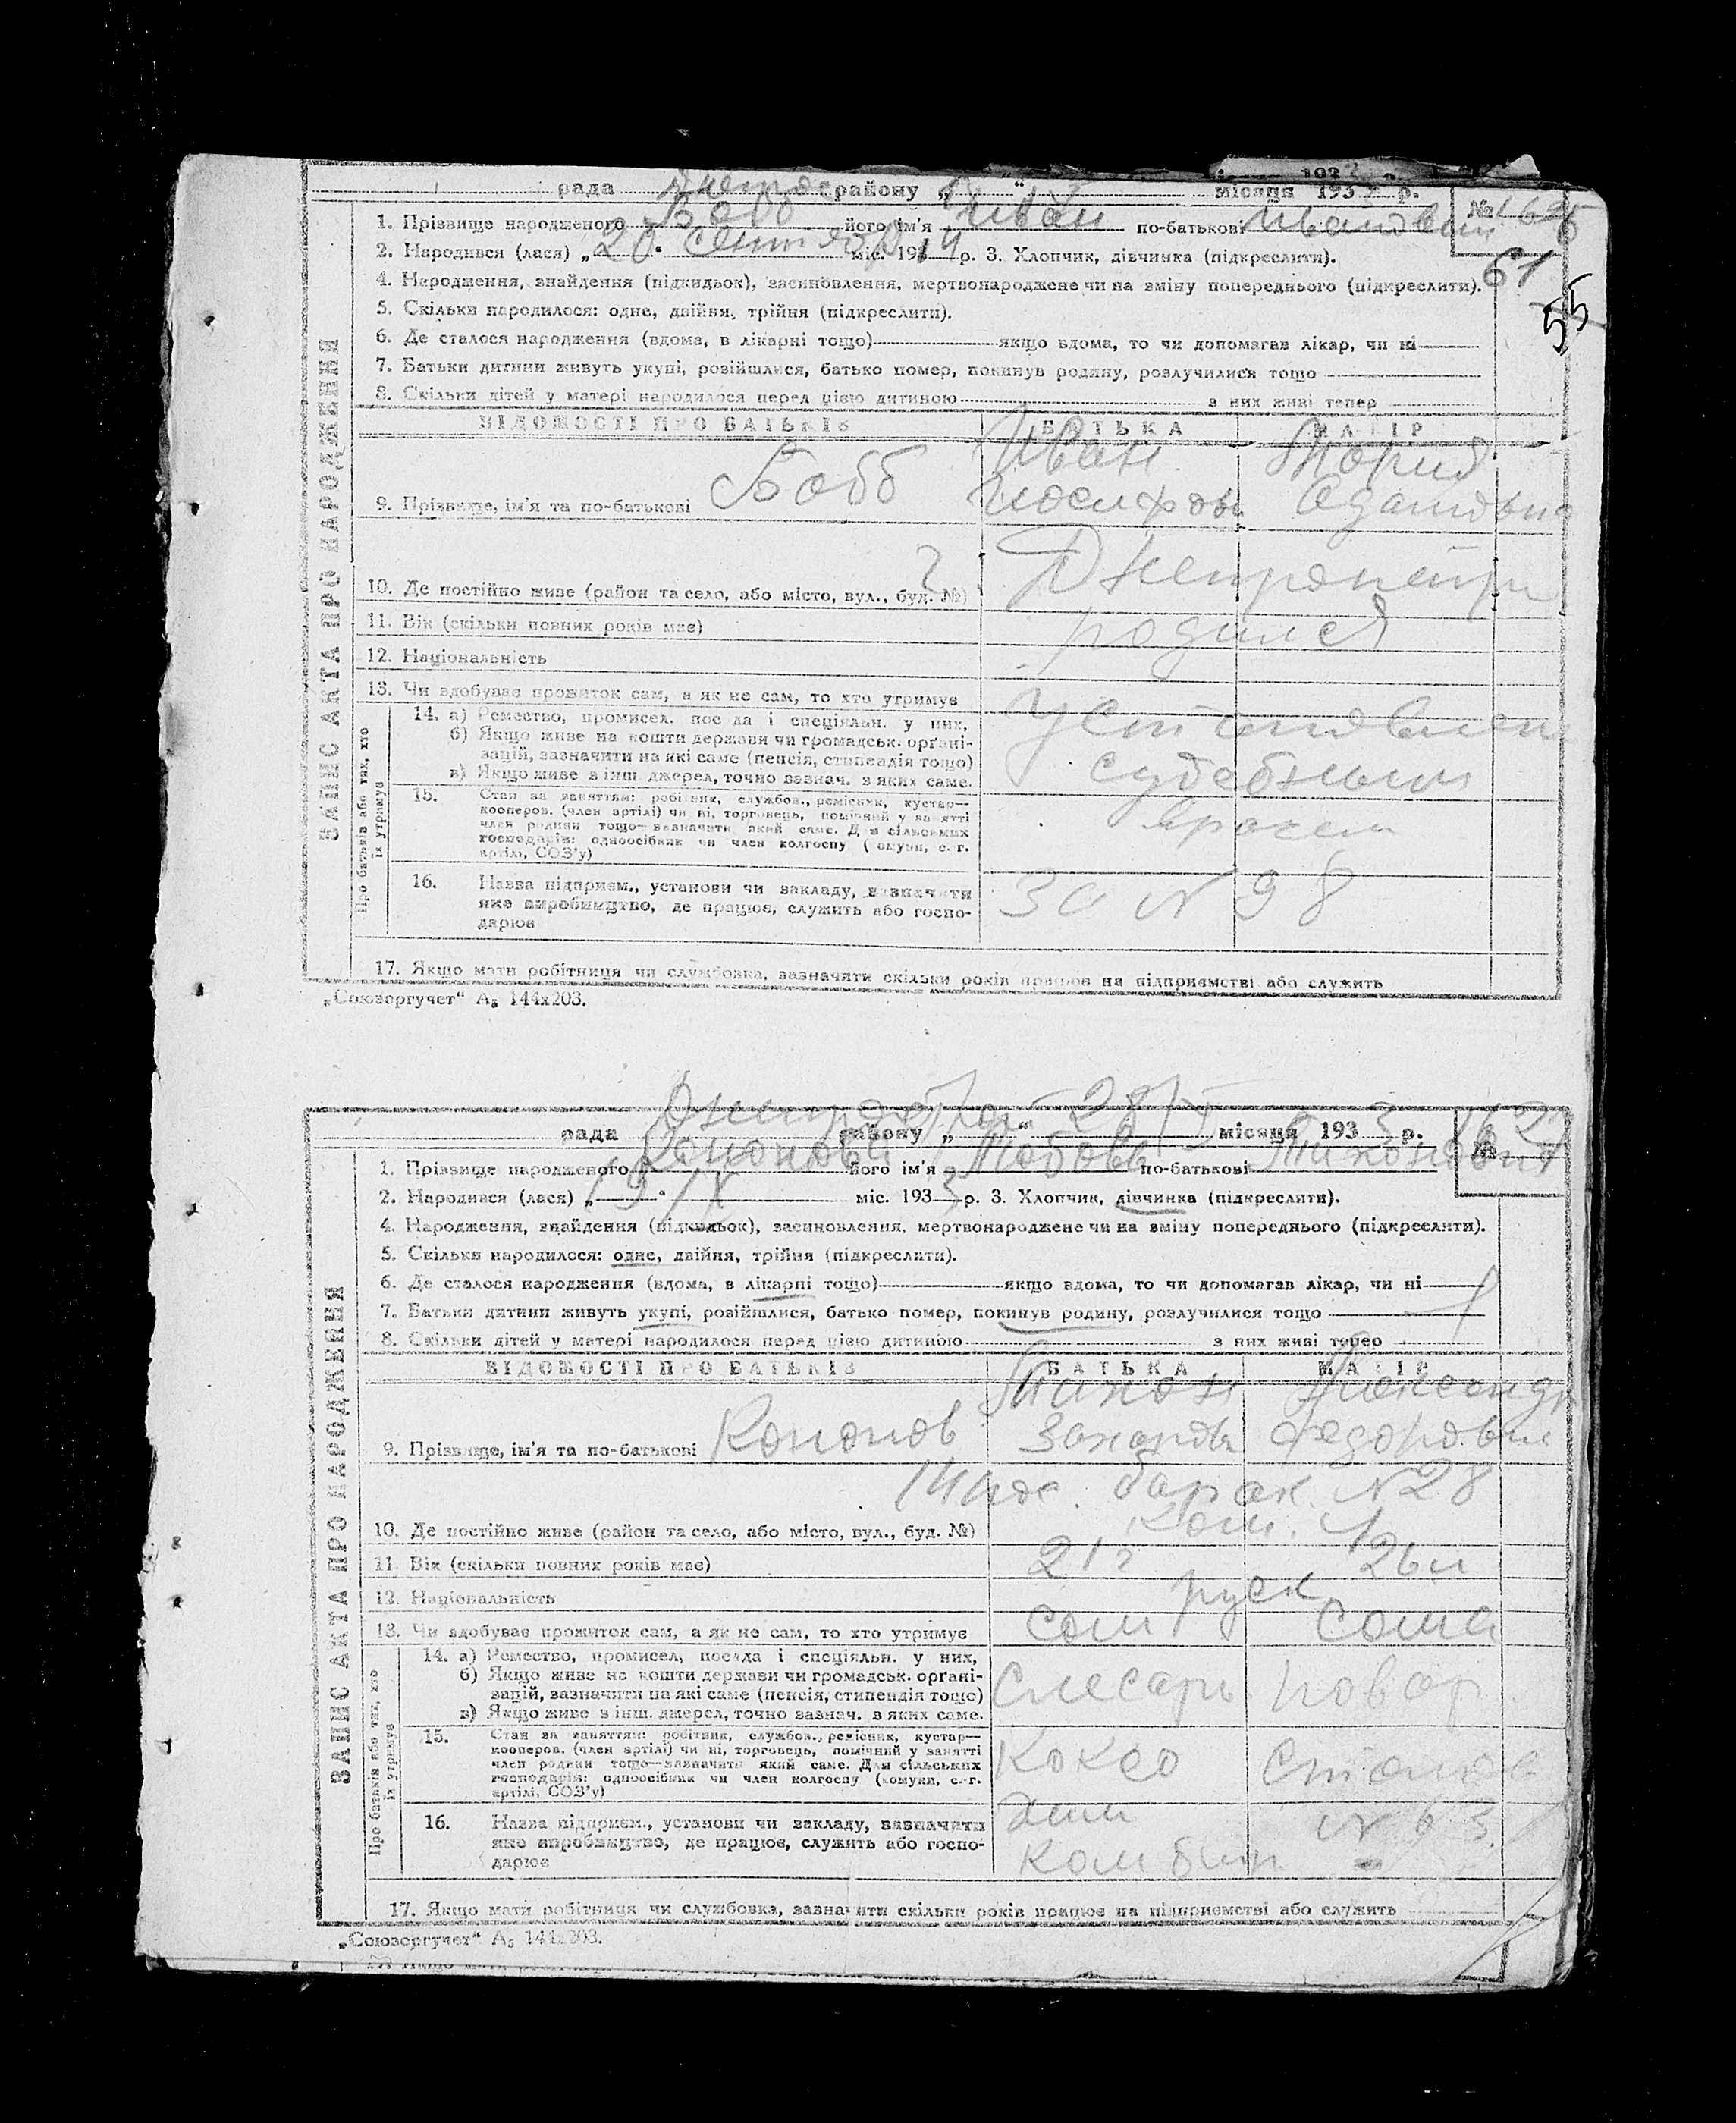 рада району „ “ місяця 193 р.
№ 1626
1. Прізвище народженого Бобб його ім'я Иван по-батькові Иванович
2. Народився (лася) „20“ сентября міс. 1914 р. 3. Хлопчик, дівчинка (підкреслити).
61
4. Народження, знайдення (підкидьок), засиновлення, мертвонароджене чи на зміну попереднього (підкреслити).
55
5. Скільки народилося: одне, двійня, трійня (підкреслити).
6. Де сталося народження (вдома, в лікарні тощо) якщо вдома, то чи допомагав лікар, чи ні
7. Батьки дитини живуть укупі, розійшлися, батько помер, покинув родину, розлучилися тощо
8. Скільки дітей у матері народилося перед цією дитиною з них живі тепер
ЗАПИС АКТА ПРО НАРОДЖЕННЯ
ВІДОМОСТІ ПРО БАТЬКІВ БАТЬКА МАТІР
Иван Мария
9. Прізвище, ім'я та по-батькові Бобб Иосифов Адамовна
10. Де постійно живе (район та село, або місто, вул., буд. №) Днепропетр
11. Вік (скільки повних років має) родился
12. Національність
13. Чи здобуває прожиток сам, а як не сам, то хто утримує
Про батьків або тих, хто їх утримує
14. а) Ремество, промисел, посада і спеціяльн. у них, Установлен
б) Якщо живе на кошти держави чи громадськ. орґані-
зацій, зазначити на які саме (пенсія, стипендія тощо) судебным
в) Якщо живе з інш. джерел, точно зазнач. з яких саме.
15. Стан за заняттям: робітник, службов., ремісник, кустар— врачем
кооперов. (член артілі) чи ні, торговець, помічний у занятті
член родини тощо—зазначити який саме. Для сільських
господарів: одноосібник чи член колгоспу (комуни, с.-г.
артілі, СОЗ'у)
16. Назва підприєм., установи чи закладу, зазначити За № 98
яке виробництво, де працює, служить або госпо-
дарює
17. Якщо мати робітниця чи службовка, зазначити скільки років працює на підприємстві або служить
„Союзоргучет“ А₅ 144х203.
рада району „ “ 28/IX місяця 1933 р.
№ 1627
1. Прізвище народженого Кононова його ім'я Любовь по-батькові Тихоновна
2. Народився (лася) „19“/IX міс. 1933 р. 3. Хлопчик, дівчинка (підкреслити).
4. Народження, знайдення (підкидьок), засиновлення, мертвонароджене чи на зміну попереднього (підкреслити).
5. Скільки народилося: одне, двійня, трійня (підкреслити).
6. Де сталося народження (вдома, в лікарні тощо) якщо вдома, то чи допомагав лікар, чи ні
7. Батьки дитини живуть укупі, розійшлися, батько помер, покинув родину, розлучилися тощо
8. Скільки дітей у матері народилося перед цією дитиною з них живі тепер
ЗАПИС АКТА ПРО НАРОДЖЕННЯ
ВІДОМОСТІ ПРО БАТЬКІВ БАТЬКА МАТІР
Тихон Александр
9. Прізвище, ім'я та по-батькові Кононов Захаров Федоровна
барак. №28
10. Де постійно живе (район та село, або місто, вул., буд. №) Ком. 1
11. Вік (скільки повних років має) 21г 26л
12. Національність руск
13. Чи здобуває прожиток сам, а як не сам, то хто утримує сам сама
Про батьків або тих, хто їх утримує
14. а) Ремество, промисел, посада і спеціяльн. у них,
б) Якщо живе на кошти держави чи громадськ. орґані- Слесарь повар
зацій, зазначити на які саме (пенсія, стипендія тощо)
в) Якщо живе з інш. джерел, точно зазнач. в яких саме.
15. Стан за заняттям: робітник, службов., ремісник, кустар— Коксо Столов
кооперов. (член артілі) чи ні, торговець, помічний у занятті
член родини тощо—зазначити який саме. Для сільських
господарів: одноосібник чи член колгоспу (комуни, с.-г.
артілі, СОЗ'у)
16. Назва підприєм., установи чи закладу, зазначити хим № 63
яке виробництво, де працює, служить або госпо-
дарює комбин
17. Якщо мати робітниця чи службовка, зазначити скільки років працює на підприємстві або служить
„Союзоргучет“ А₅ 144х203.